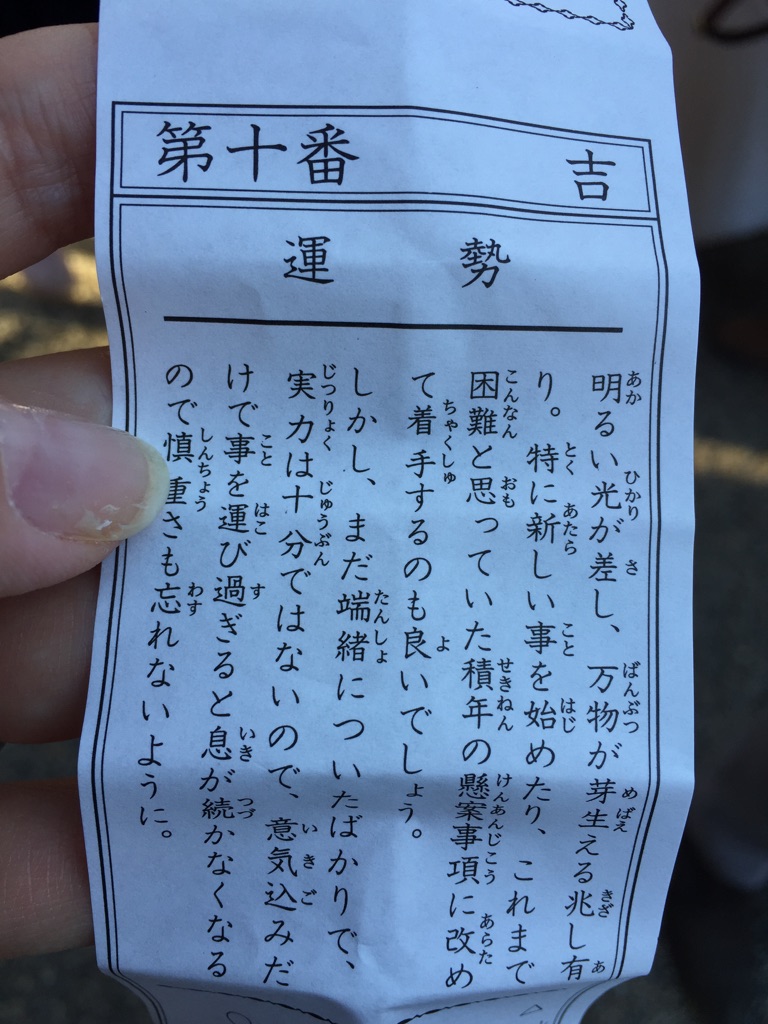 第十番 吉
運勢
明るい光が差し、万物が芽生える兆し有
り。特に新しい事を始めたり、これまで
困難と思っていた積年の懸案事項に改め
て着手するのも良いでしょう。
しかし、まだ端緒についたばかりで、
実力は十分ではないので、意気込みだ
けで事を運び過ぎると息が続かなくなる
ので慎重さも忘れないように。